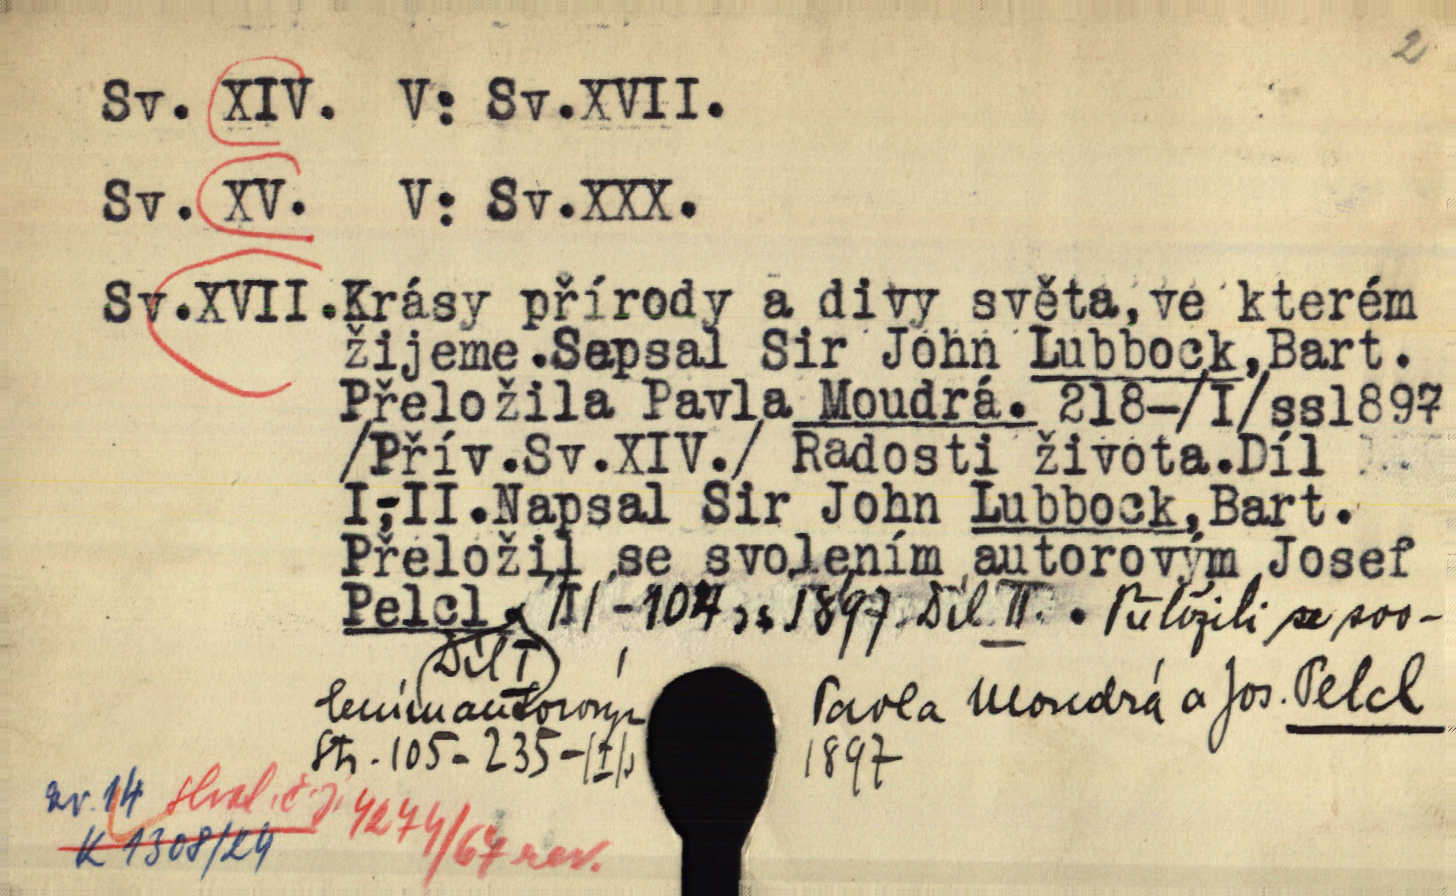 2
Sv. XIV. V: Sv.XVII.
Sv. XV. V: Sv.XXX.
Sv.XVII.Krásy přírody a divy světa,ve kterém
žijeme.Sepsal Sir John Lubbock,Bart.
Přeložila Pavla Moudrá. 218-/I/ss1897
/Přív.Sv.XIV./ Radosti života.Díl
I,-II.Napsal Sir John Lubbock,Bart.
Přeložil se svolením autorovým Josef
Pelcl. /I/-104 ss. 1897. Díl II. Přeložili se svo-
Díl I
lením autorovým Pavla Moudrá a Jos. Pelcl
Str. 105-235-/I/s 1897
sv. 14 č.j. 4274/67 rev.
K 1308/24